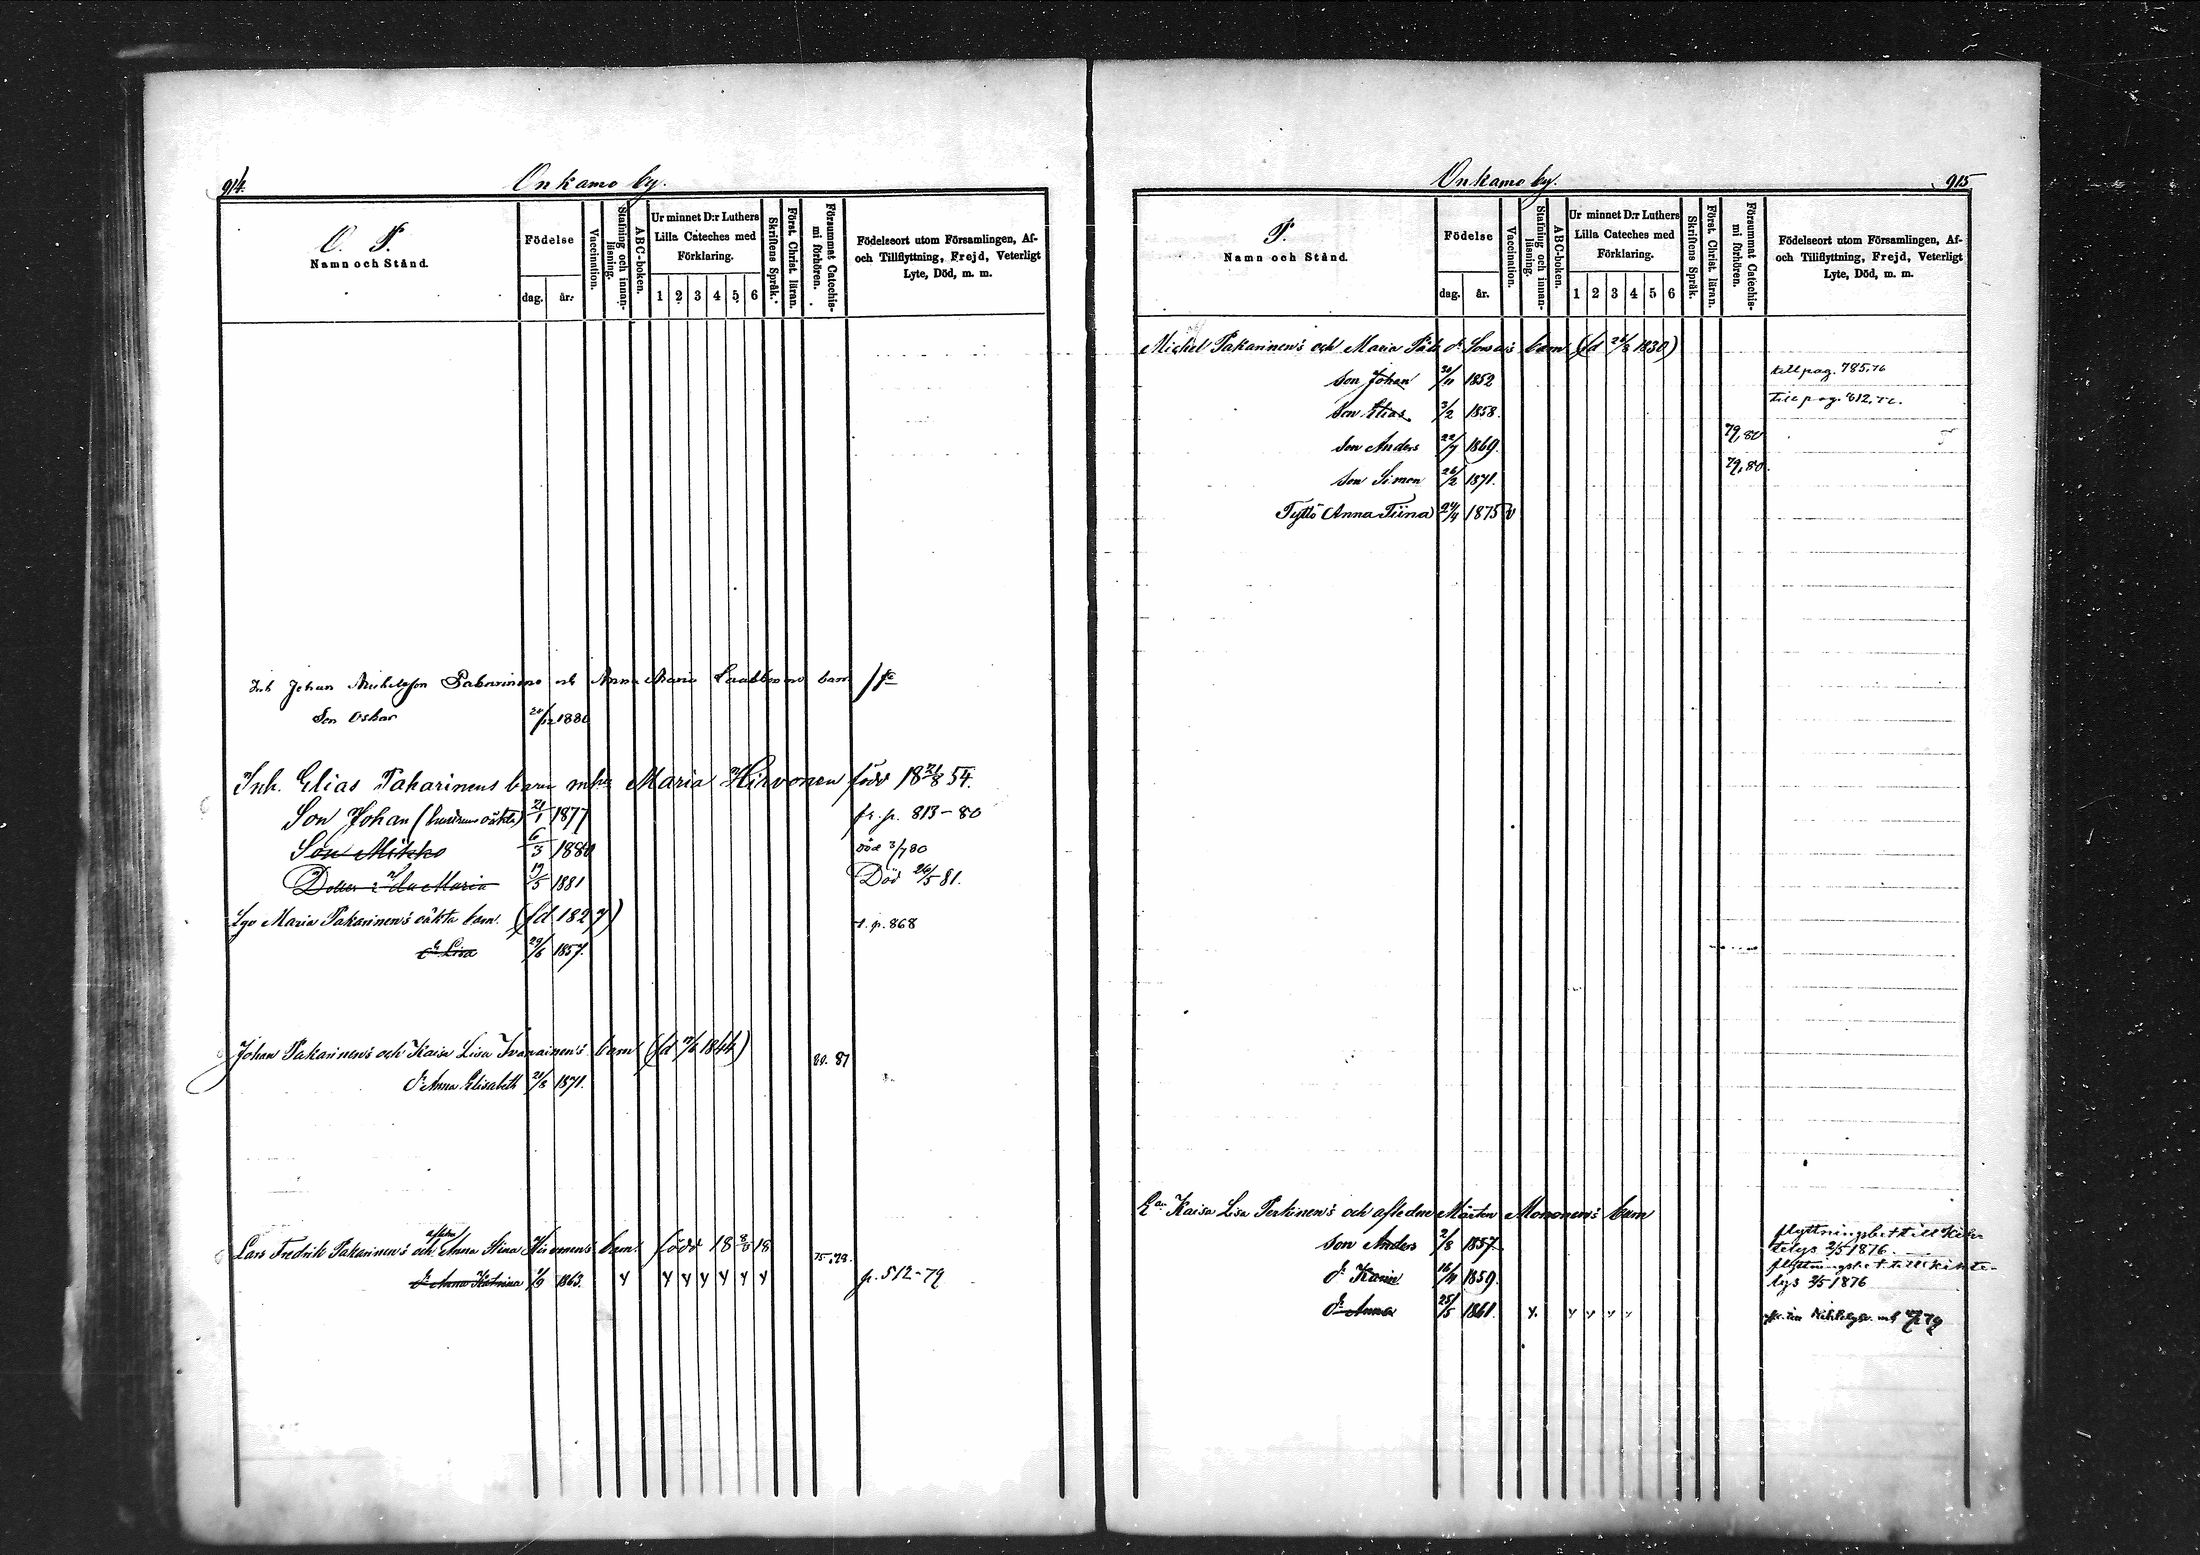 914.
Onkamo by.
O. P.
Namn och Stånd.
Födelse
dag. år.
Vaccination.
Stafning och innan-läsning.
ABC-boken.
Ur minnet D:r Luthers
Lilla Cateches med
Förklaring.
1 2 3 4 5 6
Skriftens Språk.
Först. Christ. läran.
Försummat Catechis-mi förhören.
Födelseort utom Församlingen, Af-
och Tillflyttning, Frejd, Veterligt
Lyte, Död, m. m.
Inh Johan Michelsson Pakarinens och Anna Maria barn
Son Oskar 20/12 1880
Inh. Elias Pakarinens barn m. h. Maria Hirvonen född 18 21/8 54.
Son Johan ( oäkta) 24/1 1877 fr. p. 813-80
Son Mikko 6/3 1880 död 3/7 80
Dotter Ida Maria 19/5 1881 Död 26/5 81.
Lgo Maria Pakarinen's oäkta barn. (fd 1827) t. p. 868
dr Lisa 29/6 1857.
Johan Pakarinen's och Kaisa Lisa Ivanainen's barn (fd 1844) 80. 81
dr Anna Elisabeth 21/8 1871.
Lars Fredrik Pakarinen's och aflidna Anna Stina Hirvonen's barn född 18 8/5 18 75.78.
dr Anna Katrina 1/9 1863. y y y y y y y p. 512-79
Onkamo by.
915
P.
Namn och Stånd.
Födelse
dag. år.
Vaccination.
Stafning och innan-läsning.
ABC-boken.
Ur minnet D:r Luthers
Lilla Cateches med
Förklaring.
1 2 3 4 5 6
Skriftens Språk.
Först. Christ. läran.
Försummat Catechis-mi förhören.
Födelseort utom Församlingen, Af-
och Tillflyttning, Frejd, Veterligt
Lyte, Död, m. m.
Michel Pakarinen's och Maria barn (fd 26/8 1830)
son Johan 30/11 1852 till pag. 785.76
son Elias 3/2 1858. till pag. 812.
son Anders 22/7 1869. 79,80
son Simon 26/2 1871. 79,80.
Tyttö (Anna Tiina) 24/4 1875 v
Kaisa Lisa Pertinen's och aflidne Mårten Mononen's barn
son Anders 2/8 1857 flyttningsbet till Kihte-
lys 2/5 1876.
dr Karin 16/11 1859. flyttningsbet till Kihte-
lys 2/5 1876
dr Anna 25/5 1861. y. y y y y Kihtelys. 79